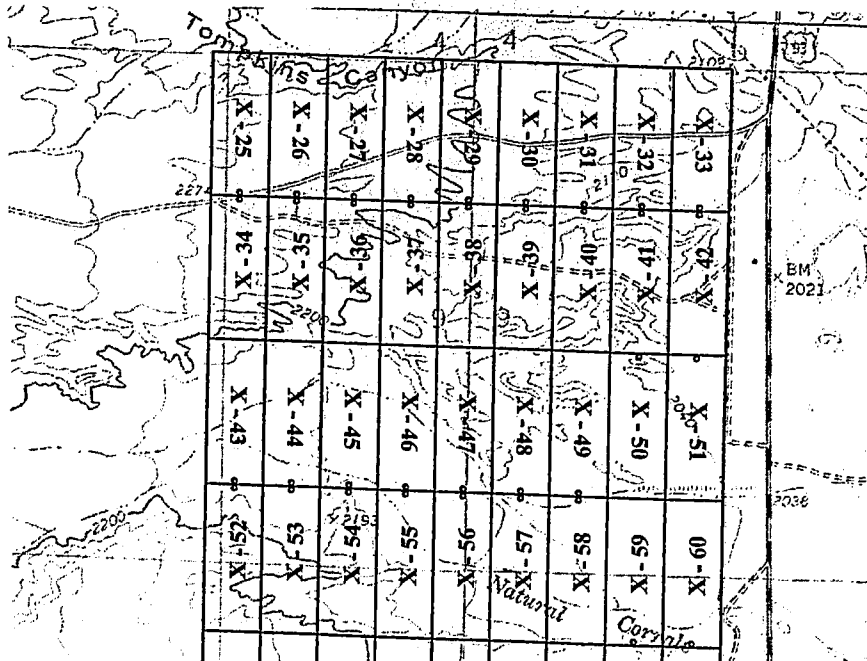 Tompkins Canyon
4 4
93
2105
X-25 X-26 X-27 X-28 X-29 X-30 X-31 X-32 X-33
2274
X-34 X-35 X-36 X-37 X-38 X-39 X-40 X-41 X-42
BM
2021
2200
X-43 X-44 X-45 X-46 X-47 X-48 X-49 X-50 X-51
2200
2193
2038
X-52 X-53 X-54 X-55 X-56 X-57 X-58 X-59 X-60
Natural
Corrals